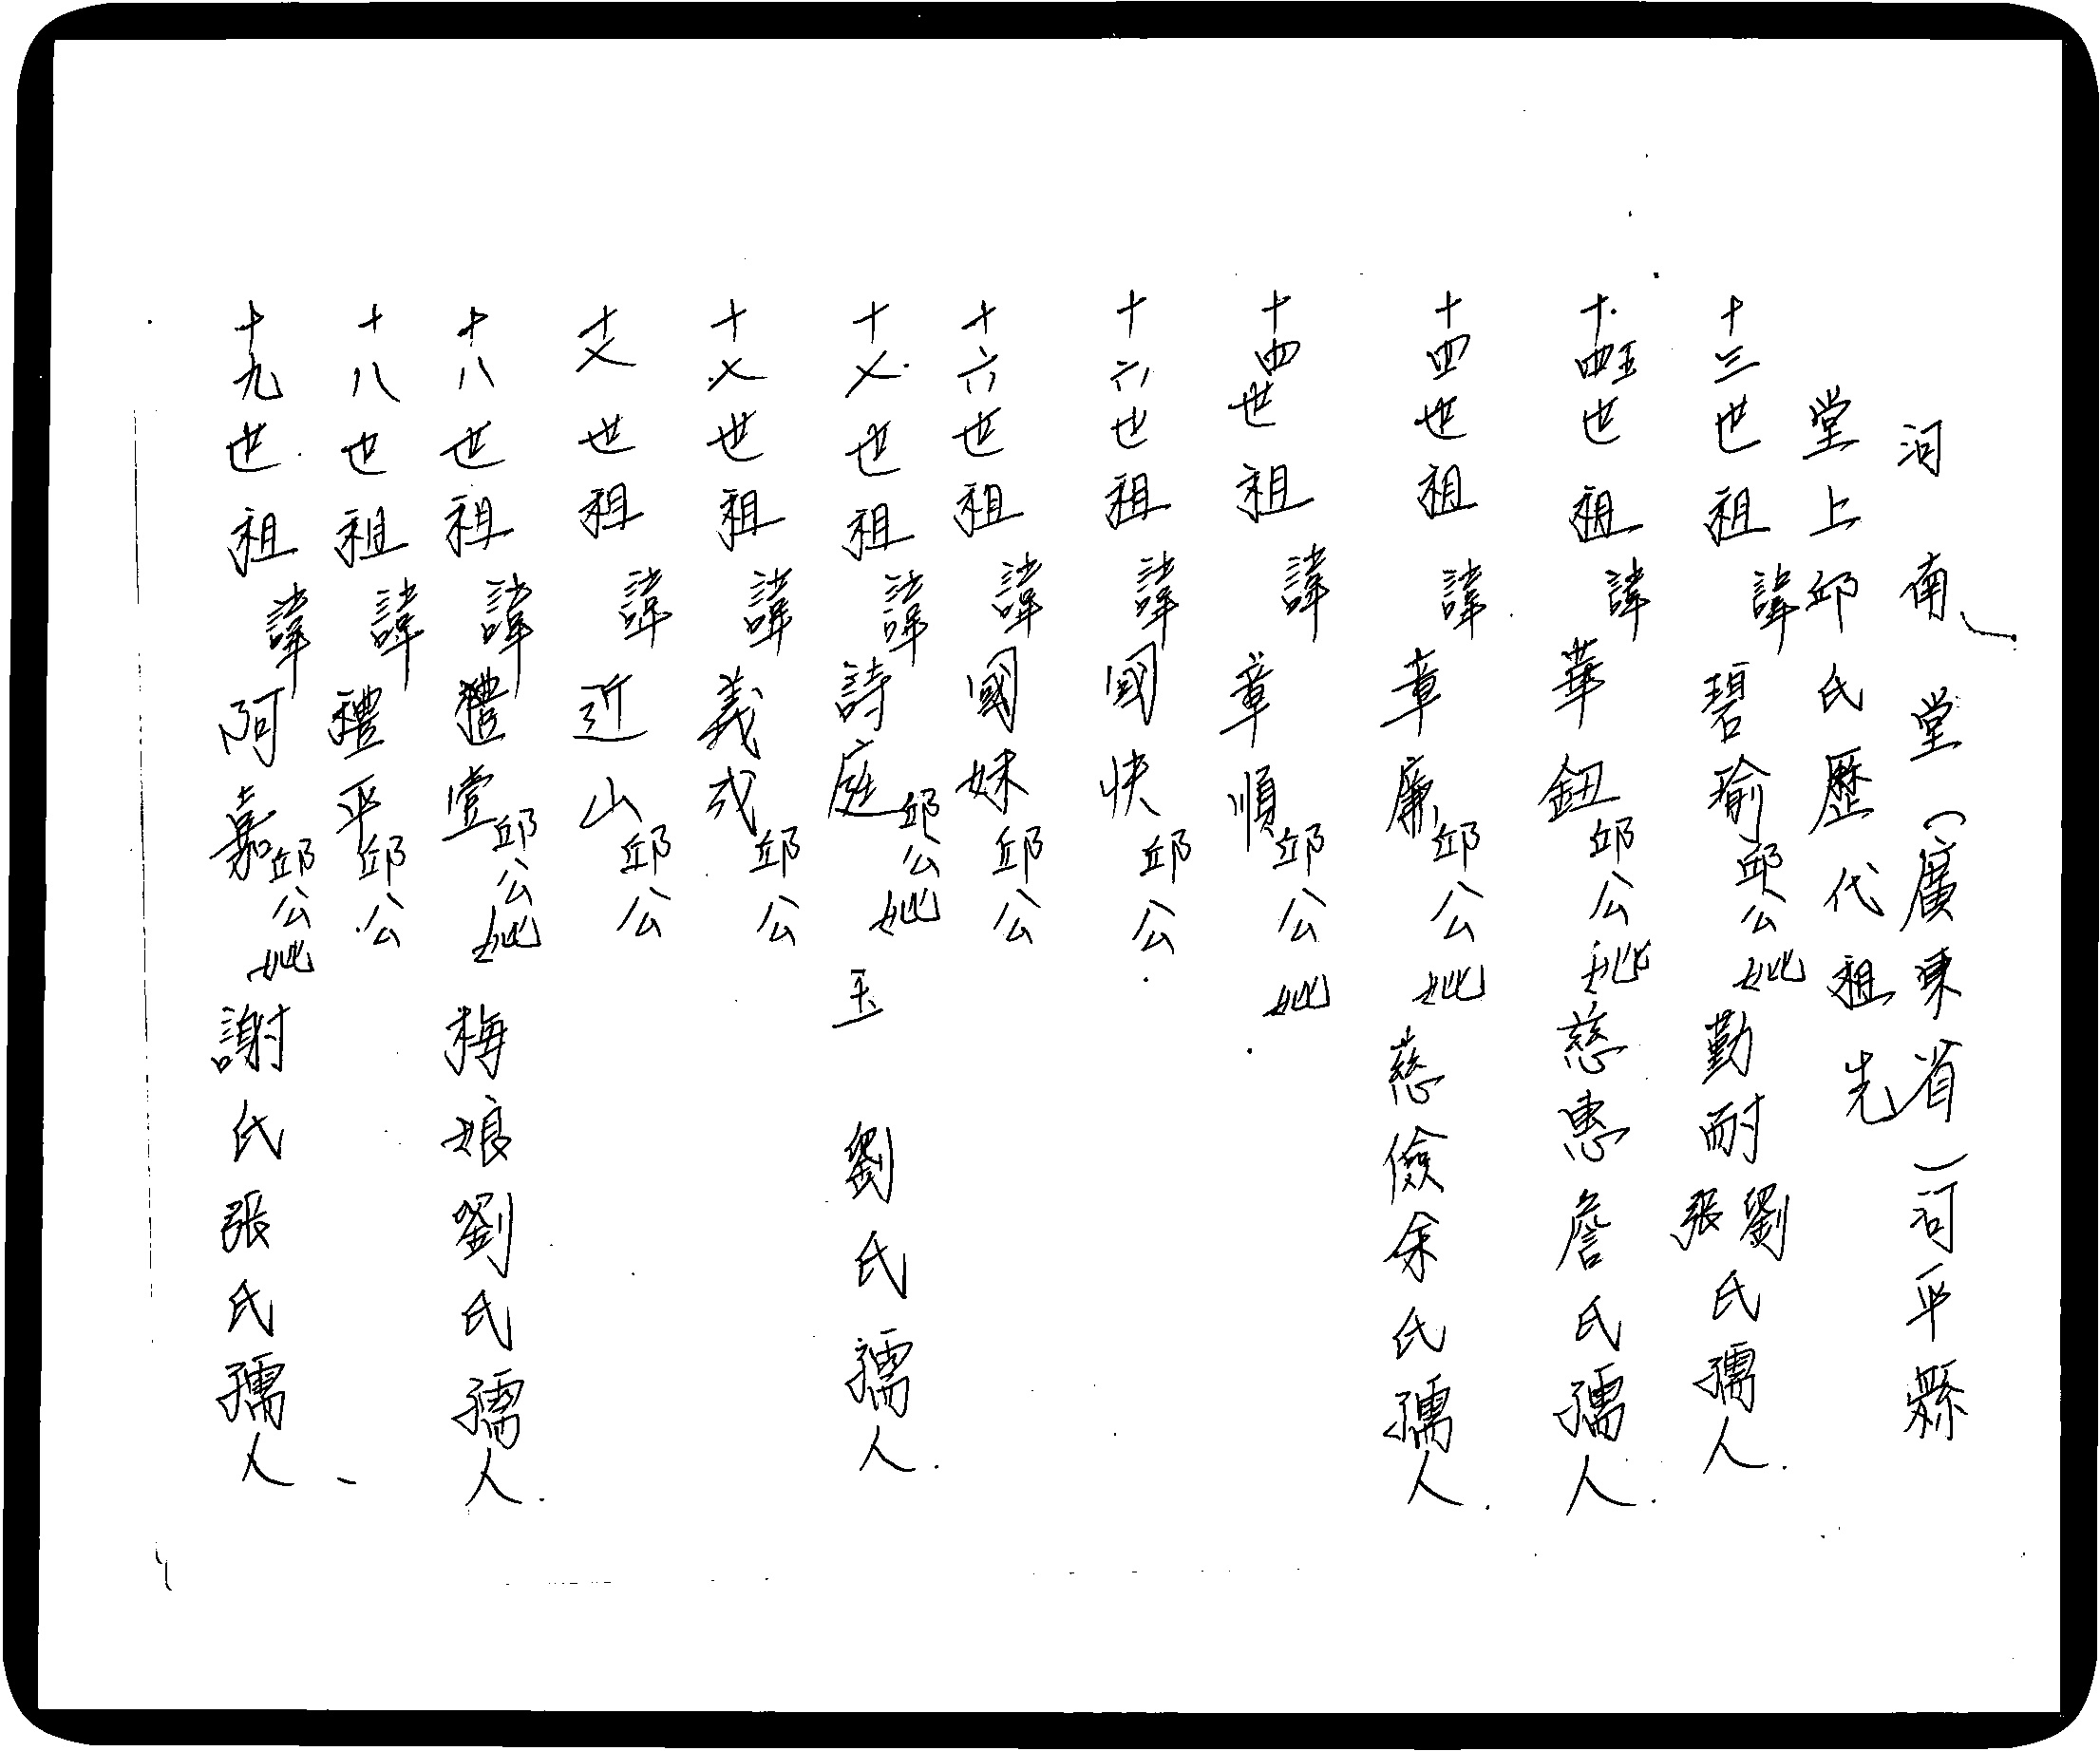 河南堂（廣東省）河平縣
堂上邱氏歷代祖先
十三世祖諱碧瑜邱公妣勤耐劉張氏孺人
十五世祖諱華鈕邱公妣慈惠詹氏孺人
十四世祖諱章廉邱公妣慈儉余氏孺人
十四世祖諱章順邱公妣
十六世祖諱國快邱公
十六世祖諱國妹邱公
十乂世祖諱詩庭邱公妣玉 劉氏孺人
十乂世祖諱義戎邱公
十乂世祖諱近山邱公
十八世祖諱禮壹邱公妣梅娘劉氏孺人
十八世祖諱禮平邱公
十九世祖諱阿嘉邱公妣謝氏張氏孺人